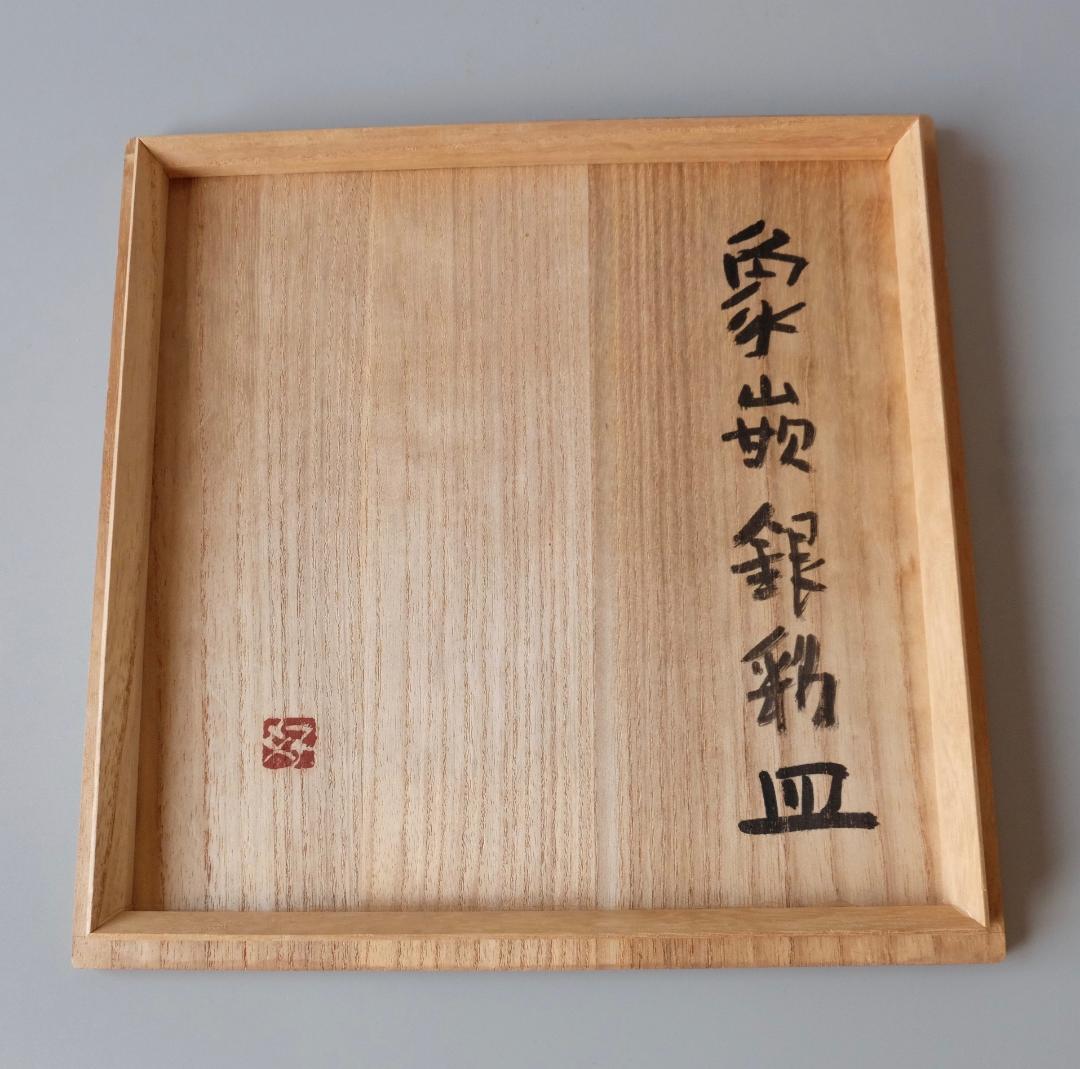 象嵌銀彩皿